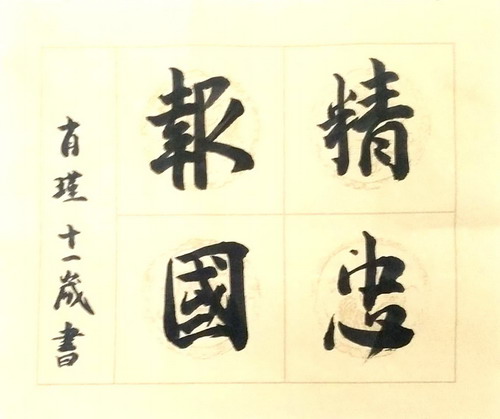 精忠
報國
肖瑾十一歲書